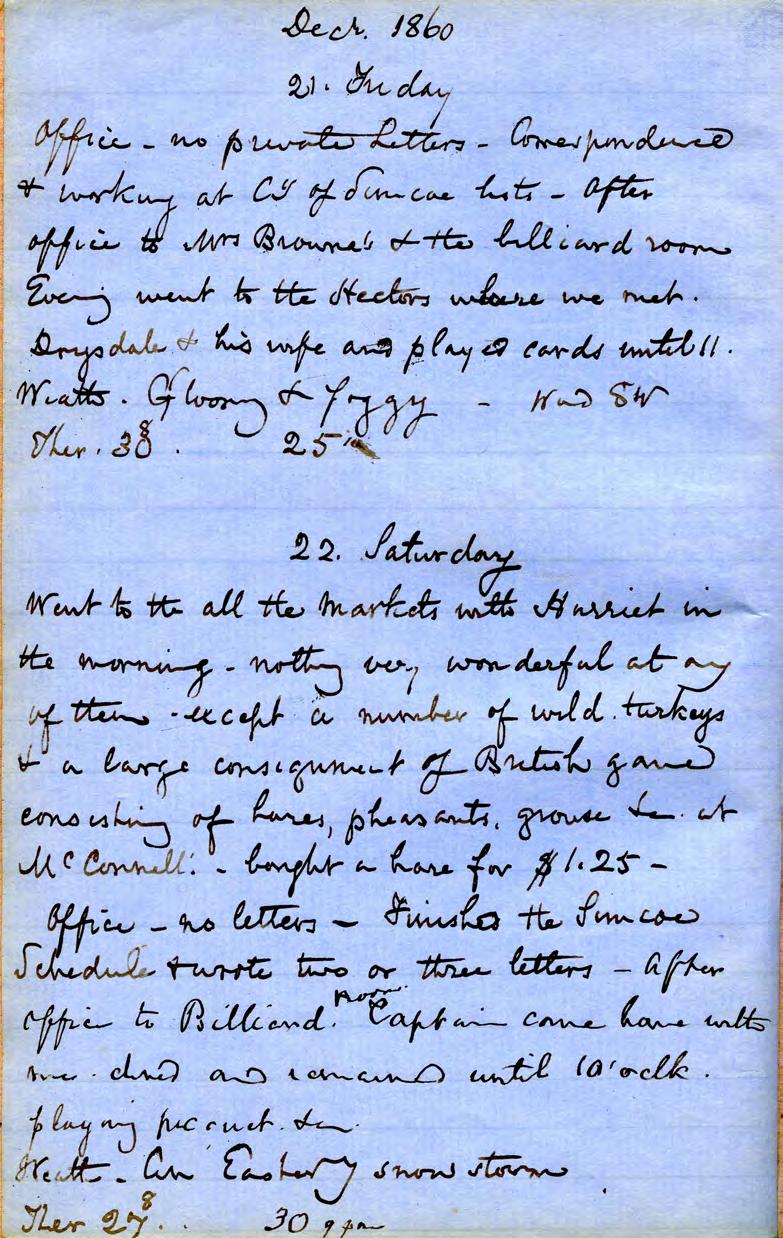 Decr. 1860
21. Friday
Office - no private Letters - Correspondence
& working at Cy of Simcoe lists - After
office to Mrs Browne's & the billiard room
Evening went to the Hectors where we met.
Drysdale & his wife and played cards until 11.
Weath. Gloomy & Foggy - Wind SW
Ther. 30 8. 25
22. Saturday
Went to the all the Markets with Harriet in
the morning - nothing very wonderful at any
of them - except a number of wild turkeys
& a large consignment of British game
consisting of hares, pheasants, grouse &c. at
McConnell's - bought a hare for $1.25 -
Office - no letters - Finished the Simcoe
Schedule & wrote two or three letters - After
office to Billiard room. Captain came home with
me dined and remained until 10 o'clk.
playing picquet &c.
Weath - An Easterly snow storm
Ther 27 8. 30 9 pm